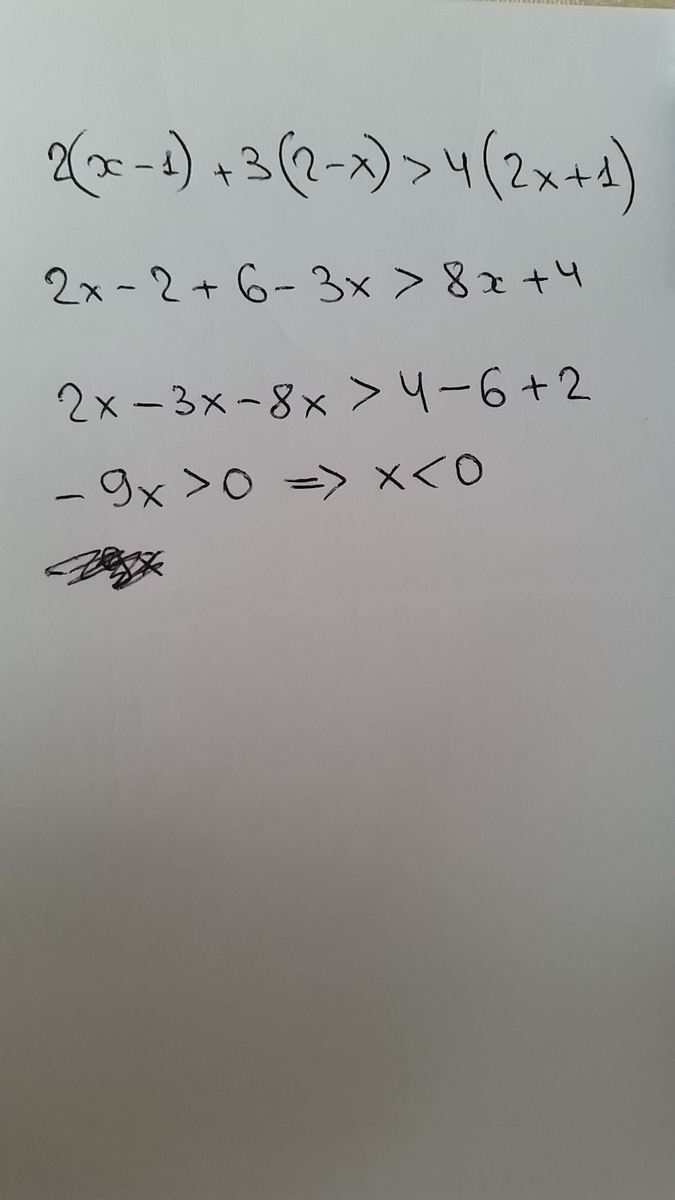 2(x-1)+3(2-x)>4(2x+1)
2x-2+6-3x>8x+4
2x-3x-8x>4-6+2
-9x>0 => x<0